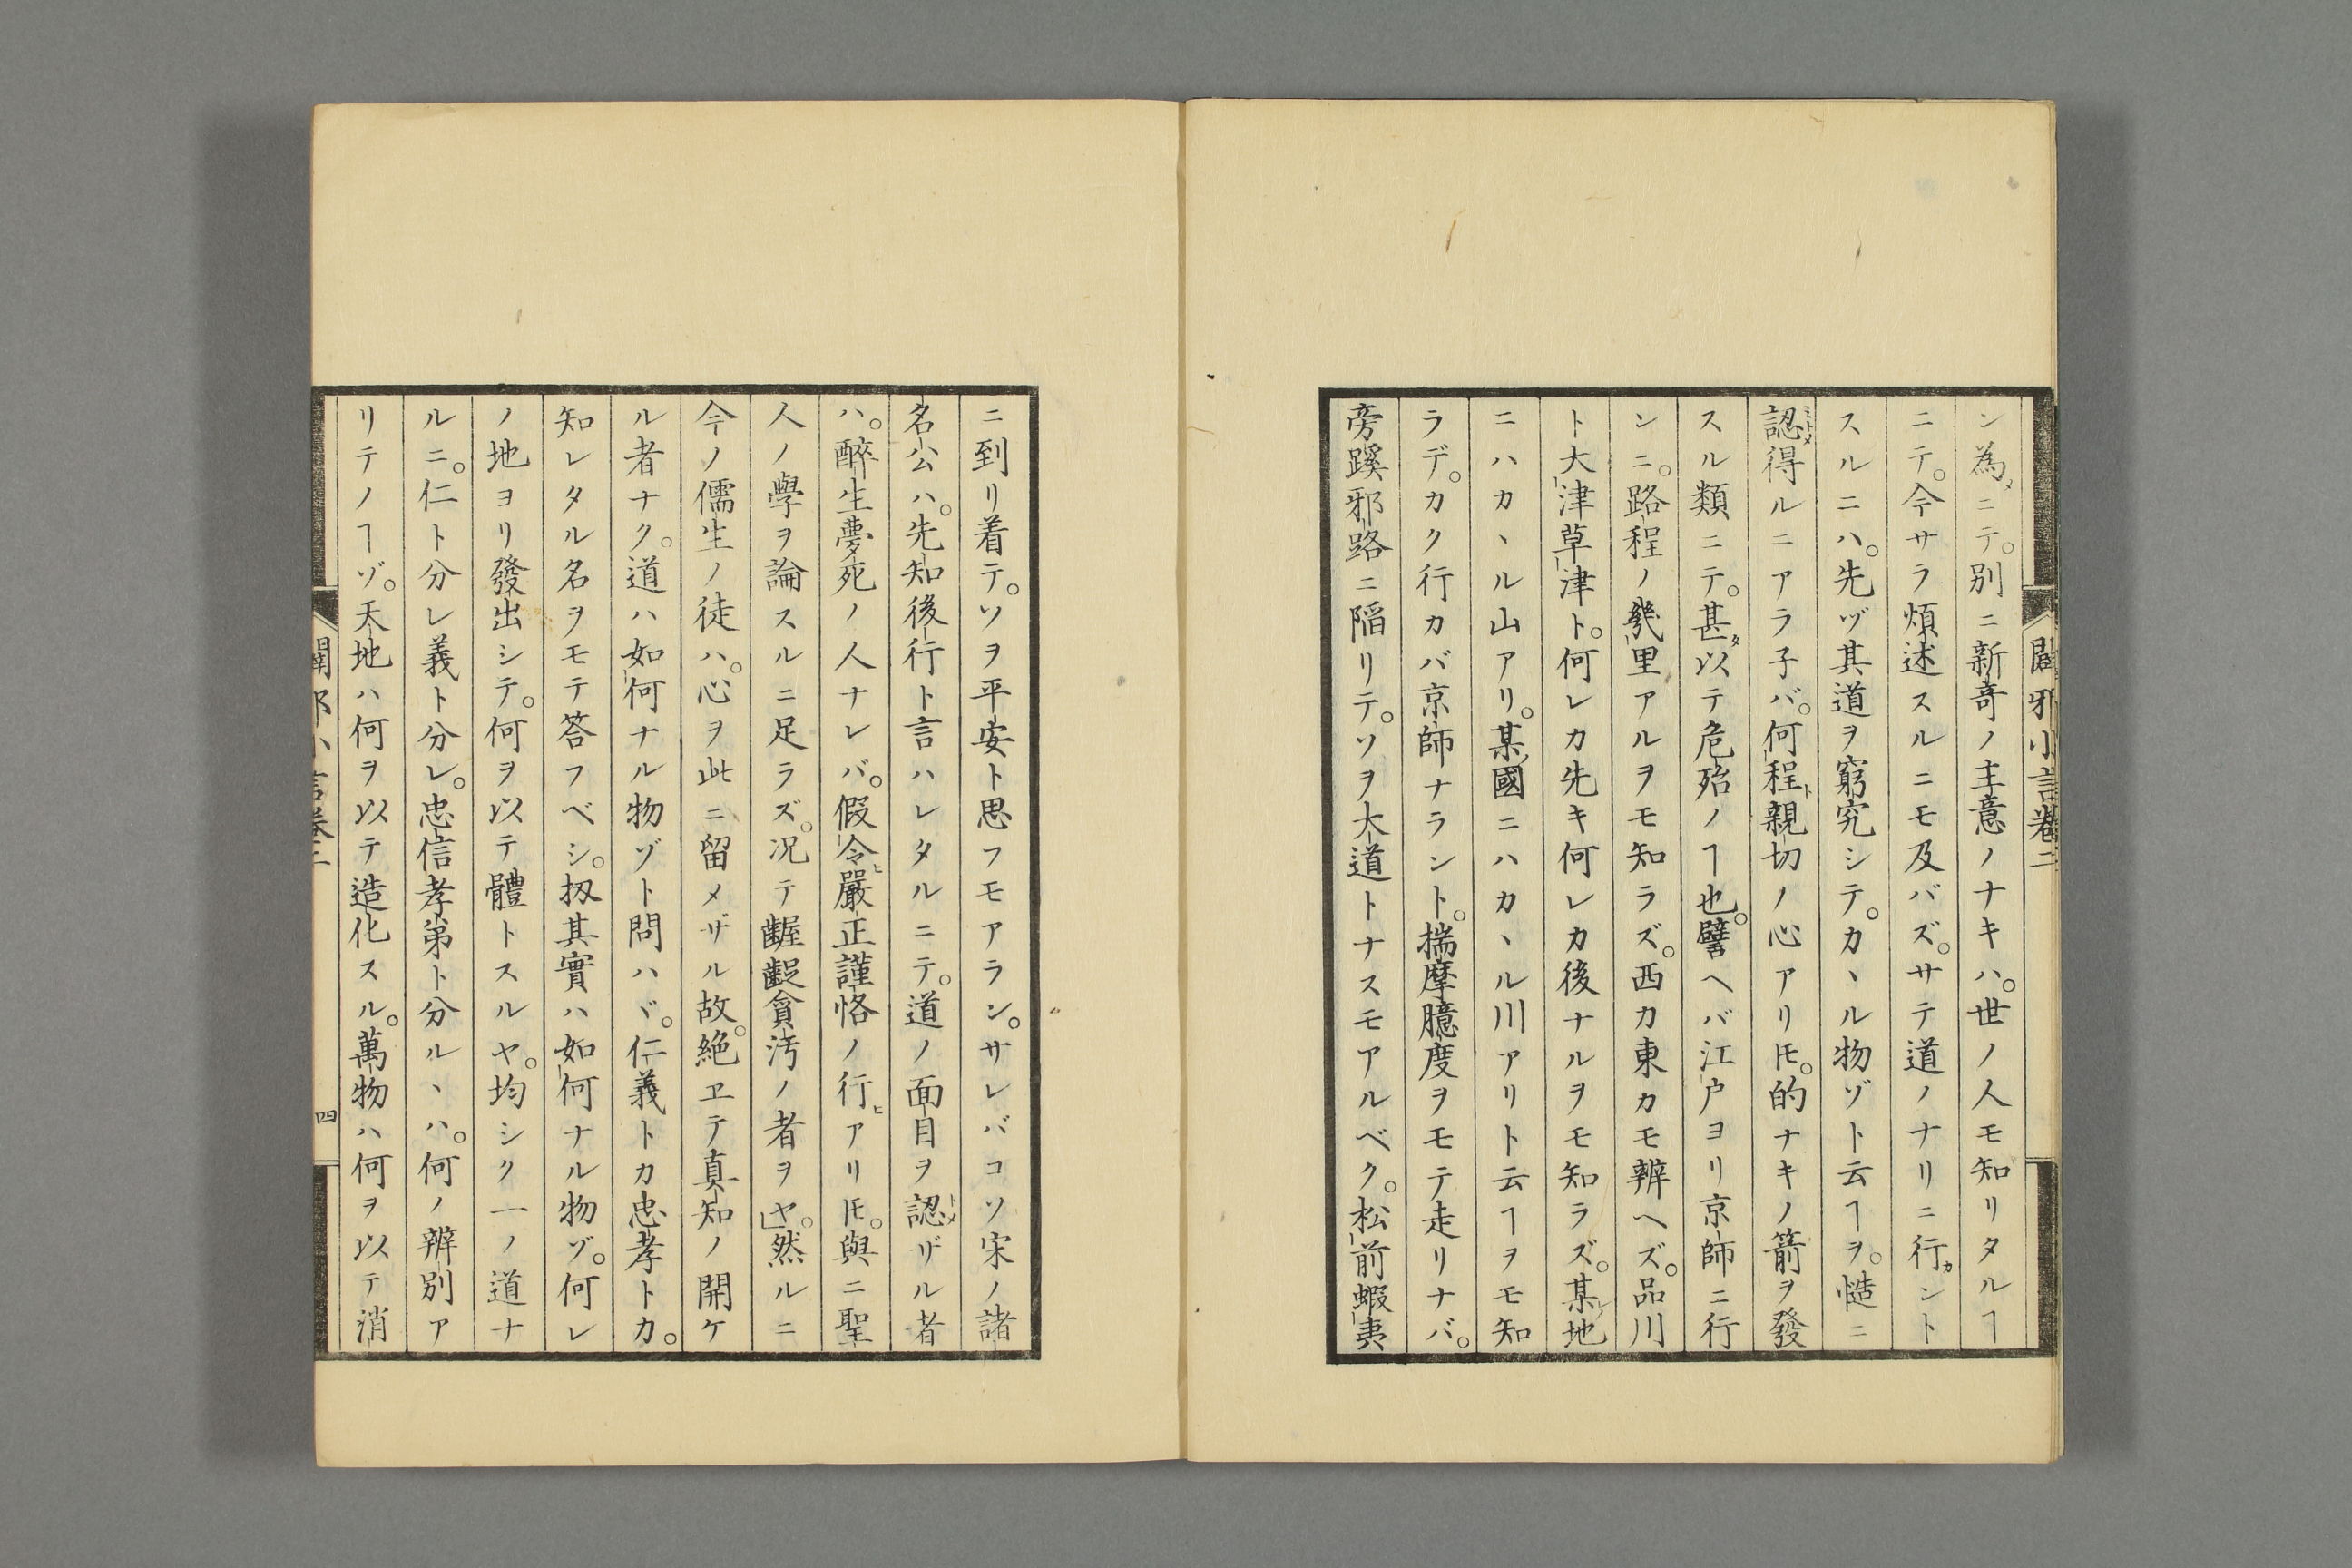 闢邪小言卷二
ン為メニテ。別ニ新奇ノ主意ノナキハ。世ノ人モ知リタルヿ
ニテ。今サラ煩述スルニモ及バズ。サテ道ノナリニ行カントスルニハ。先ヅ其道ヲ窮究シテ。カヽル物ゾト云ヿヲ。慥ニ
認得ルニアラ子バ。何程ト親切ノ心アリ𪜈。的ナキノ箭ヲ發
スル類ニテ。甚タ以テ危殆ノヿ也。譬ヘバ江戸ヨリ京師ニ行
ンニ。路程ノ幾里アルヲモ知ラズ。西カ東カモ辨ヘズ。品川
ト大津草津ト。何レカ先キ何レカ後ナルヲモ知ラズ。某ノ地
ニハカヽル山アリ。某ノ國ニハカヽル川アリト云ヿヲモ知
ラデ。カク行カバ京師ナラント。揣摩臆度ヲモテ走リナバ。
旁蹊邪路ニ陷リテ。ソヲ大道トナスモアルベク。松前蝦夷
ニ到リ着テ。ソヲ平安ト思フモアラン。サレバコソ宋ノ諸
名公ハ。先知後行ト言ハレタルニテ。道ノ面目ヲ認トメザル者
ハ。醉生夢死ノ人ナレバ。假令ヒ嚴正謹恪ノ行ヒアリ𪜈。與ニ聖
人ノ學ヲ論スルニ足ラズ。况テ齷齪貪汚ノ者ヲヤ。」然ルニ
今ノ儒生ノ徒ハ。心ヲ此ニ留メザル故。絶ヱテ真知ノ開ケ
ル者ナク。道ハ如何ナル物ゾト問ハヾ。仁義トカ忠孝トカ。
知レタル名ヲモテ答フベシ。扨其實ハ如何ナル物ゾ。何レ
ノ地ヨリ發出シテ。何ヲ以テ體トスルヤ。均シク一ノ道ナ
ルニ。仁ト分レ義ト分レ。忠信孝弟ト分ルヽハ。何ノ辨別ア
リテノヿゾ。天地ハ何ヲ以テ造化スル。萬物ハ何ヲ以テ消
闢邪小言卷二
四